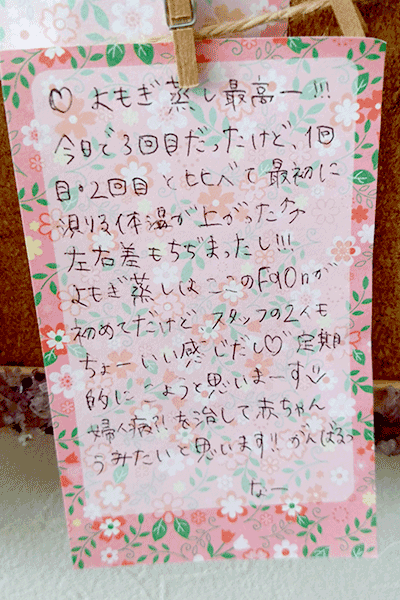 ♡ よもぎ蒸し最高ー!!!
今日で3回目だったけど、1回
目・2回目と比べて最初に
測る体温が上がった⤴
左右差もちぢまったし!!!
よもぎ蒸しはここのFaonが
初めてだけど、スタッフの2人も
ちょーいい感じだし♡定期
的にこようと思いまーす
婦人病!!を治して赤ちゃん
うみたいと思います!!がんばるっ
なー